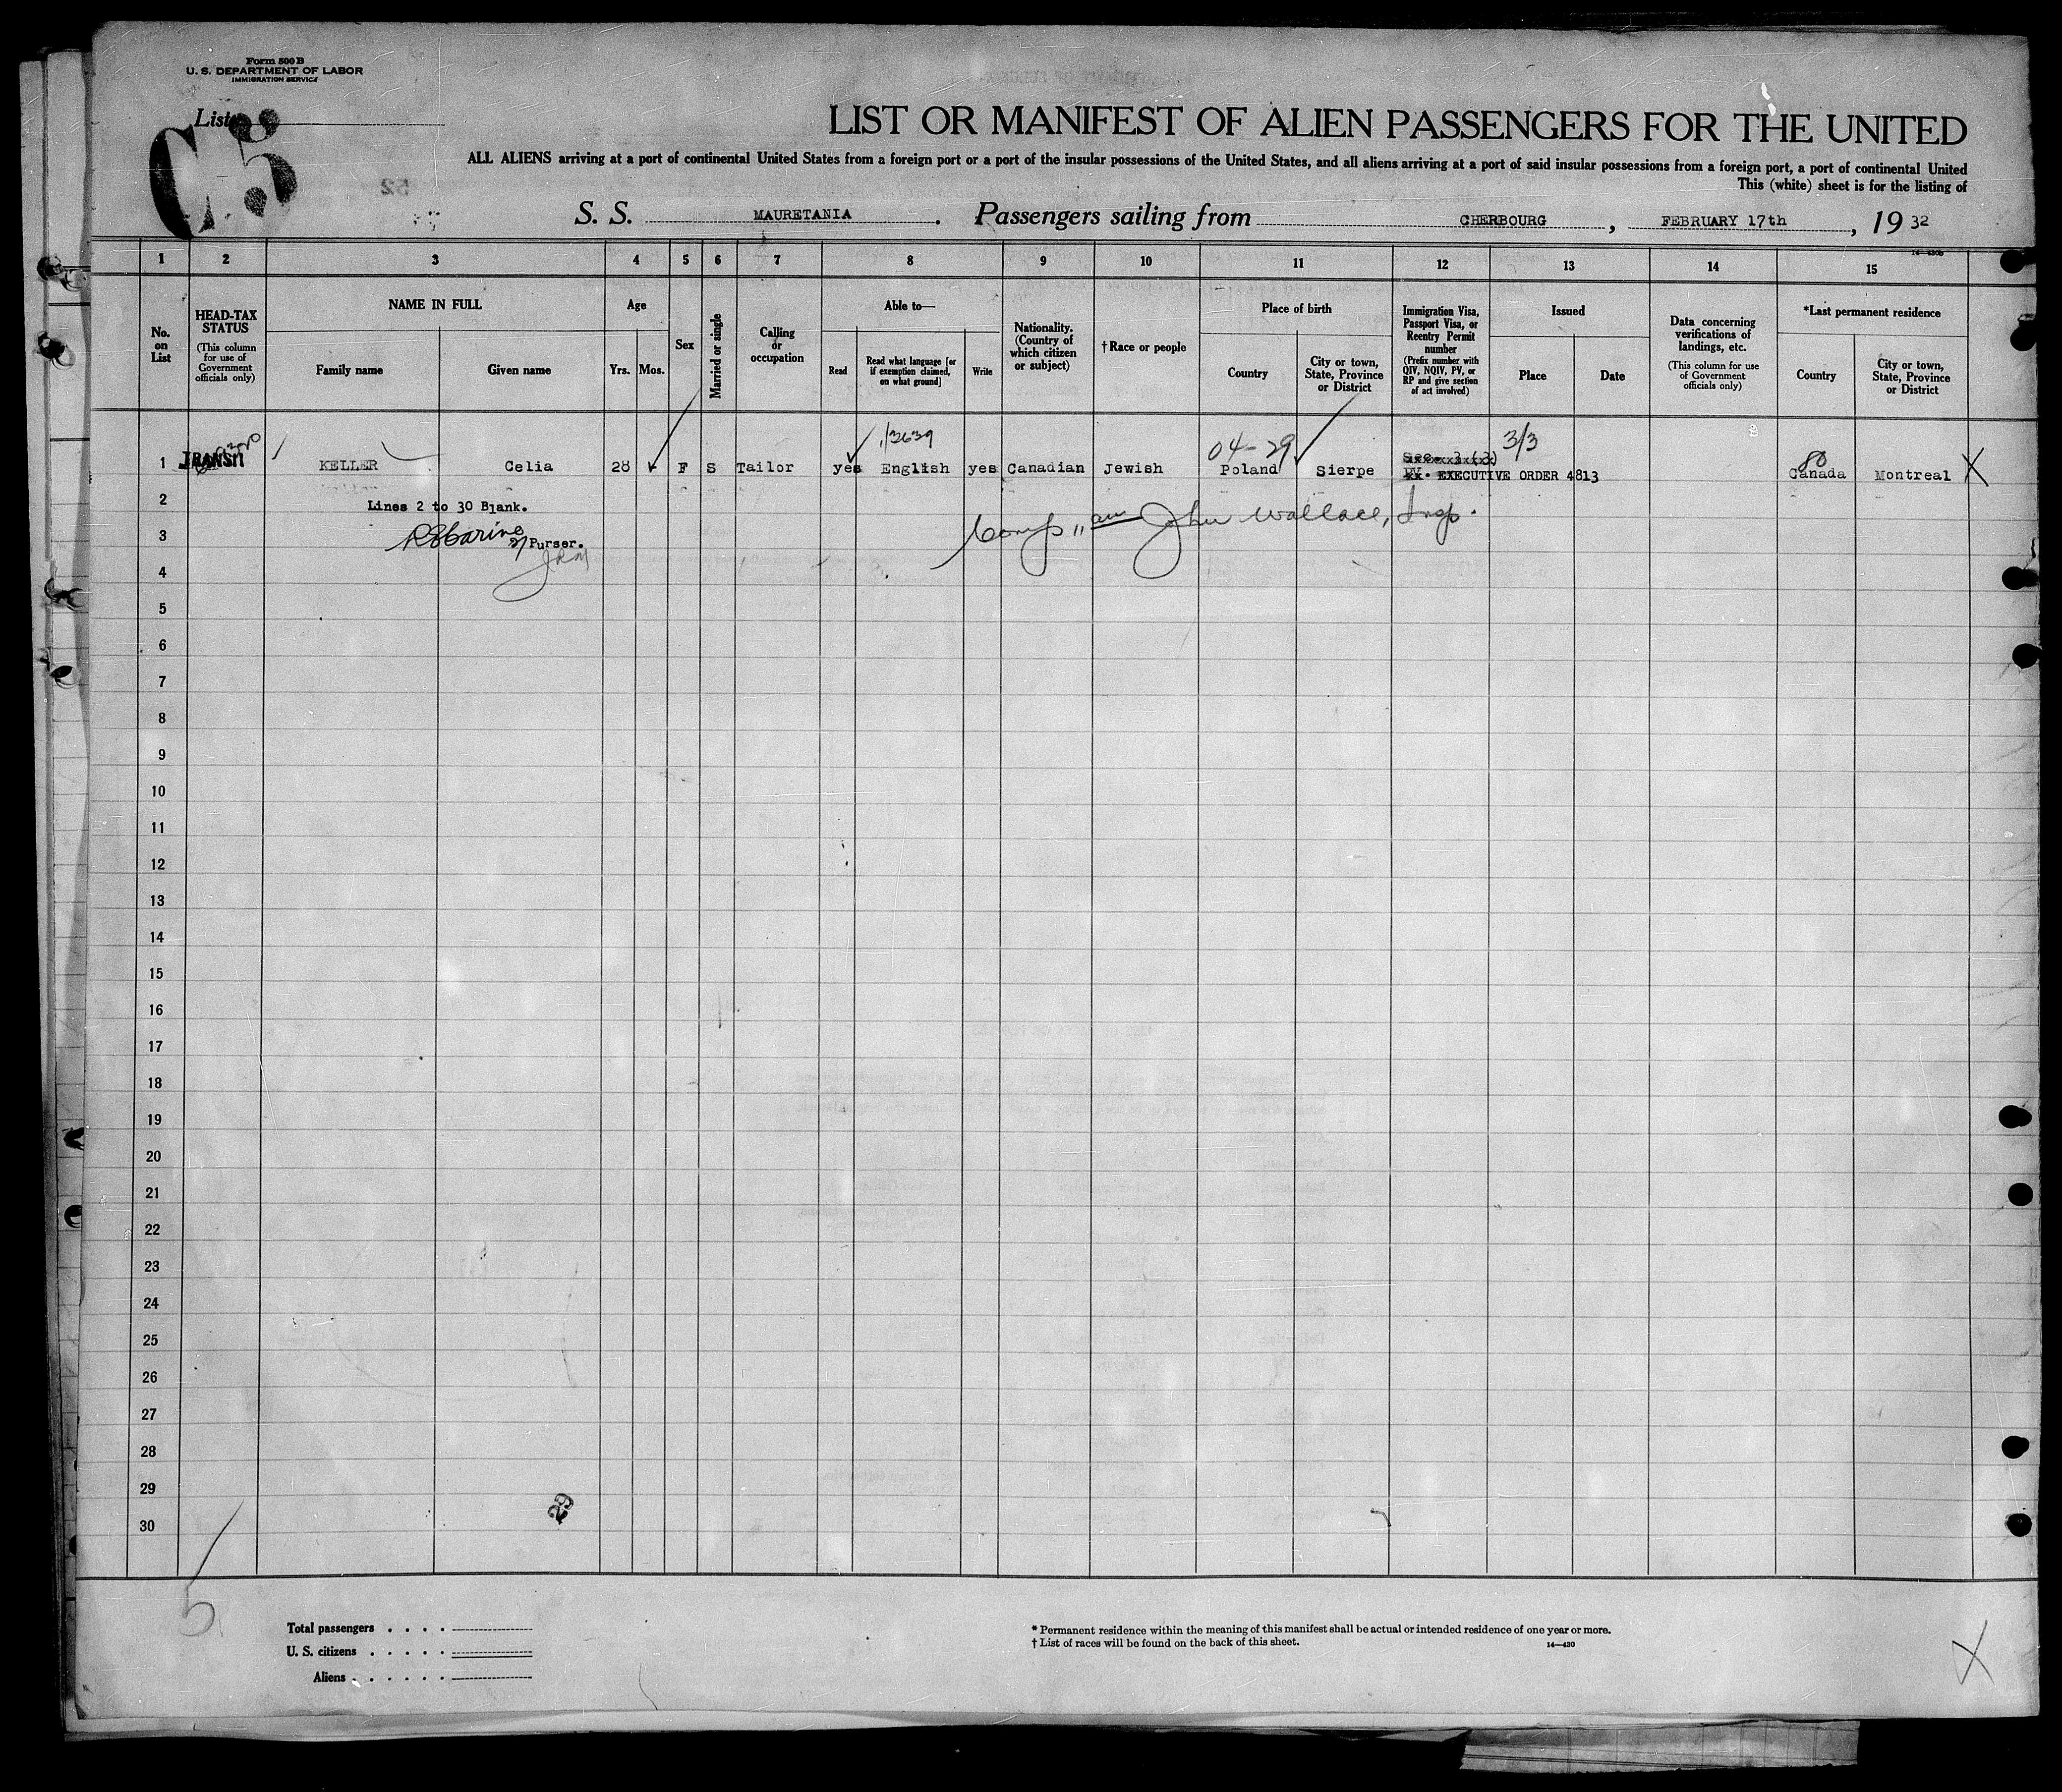 Form 500 B
U. S. DEPARTMENT OF LABOR
IMMIGRATION SERVICE
List
C 5
LIST OR MANIFEST OF ALIEN PASSENGERS FOR THE UNITED
ALL ALIENS arriving at a port of continental United States from a foreign port or a port of the insular possessions of the United States, and all aliens arriving at a port of said insular possessions from a foreign port, a port of continental United
This (white) sheet is for the listing of
S. S. MAURETANIA. Passengers sailing from CHERBOURG, FEBRUARY 17th, 19 32
1 2 3 4 5 6 7 8 9 10 11 12 13 14 15
No. on List
HEAD-TAX STATUS
(This column for use of Government officials only)
NAME IN FULL
Family name
Given name
Age
Yrs. Mos.
Sex
Married or single
Calling or occupation
Able to—
Read
Read what language [or if exemption claimed, on what ground]
Write
Nationality. (Country of which citizen or subject)
†Race or people
Place of birth
Country
City or town, State, Province or District
Immigration Visa, Passport Visa, or Reentry Permit number
(Prefix number with QIV, NQIV, PV, or RP and give section of act involved)
Issued
Place
Date
Data concerning verifications of landings, etc.
(This column for use of Government officials only)
*Last permanent residence
Country
City or town, State, Province or District
3/3
04-29
80
1 TRANSIT KELLER Celia 28 F S Tailor yes English yes Canadian Jewish Poland Sierpe Sec. 3 (3) Canada Montreal X
EXECUTIVE ORDER 4813
2 Lines 2 to 30 Blank.
John Wallace, Insp.
3 Purser.
4
5
6
7
8
9
10
11
12
13
14
15
16
17
18
19
20
21
22
23
24
25
26
27
28
29
30
23
5
Total passengers . . . .
U. S. citizens . . . . .
Aliens . . . . . .
* Permanent residence within the meaning of this manifest shall be actual or intended residence of one year or more.
† List of races will be found on the back of this sheet.
14—430
X